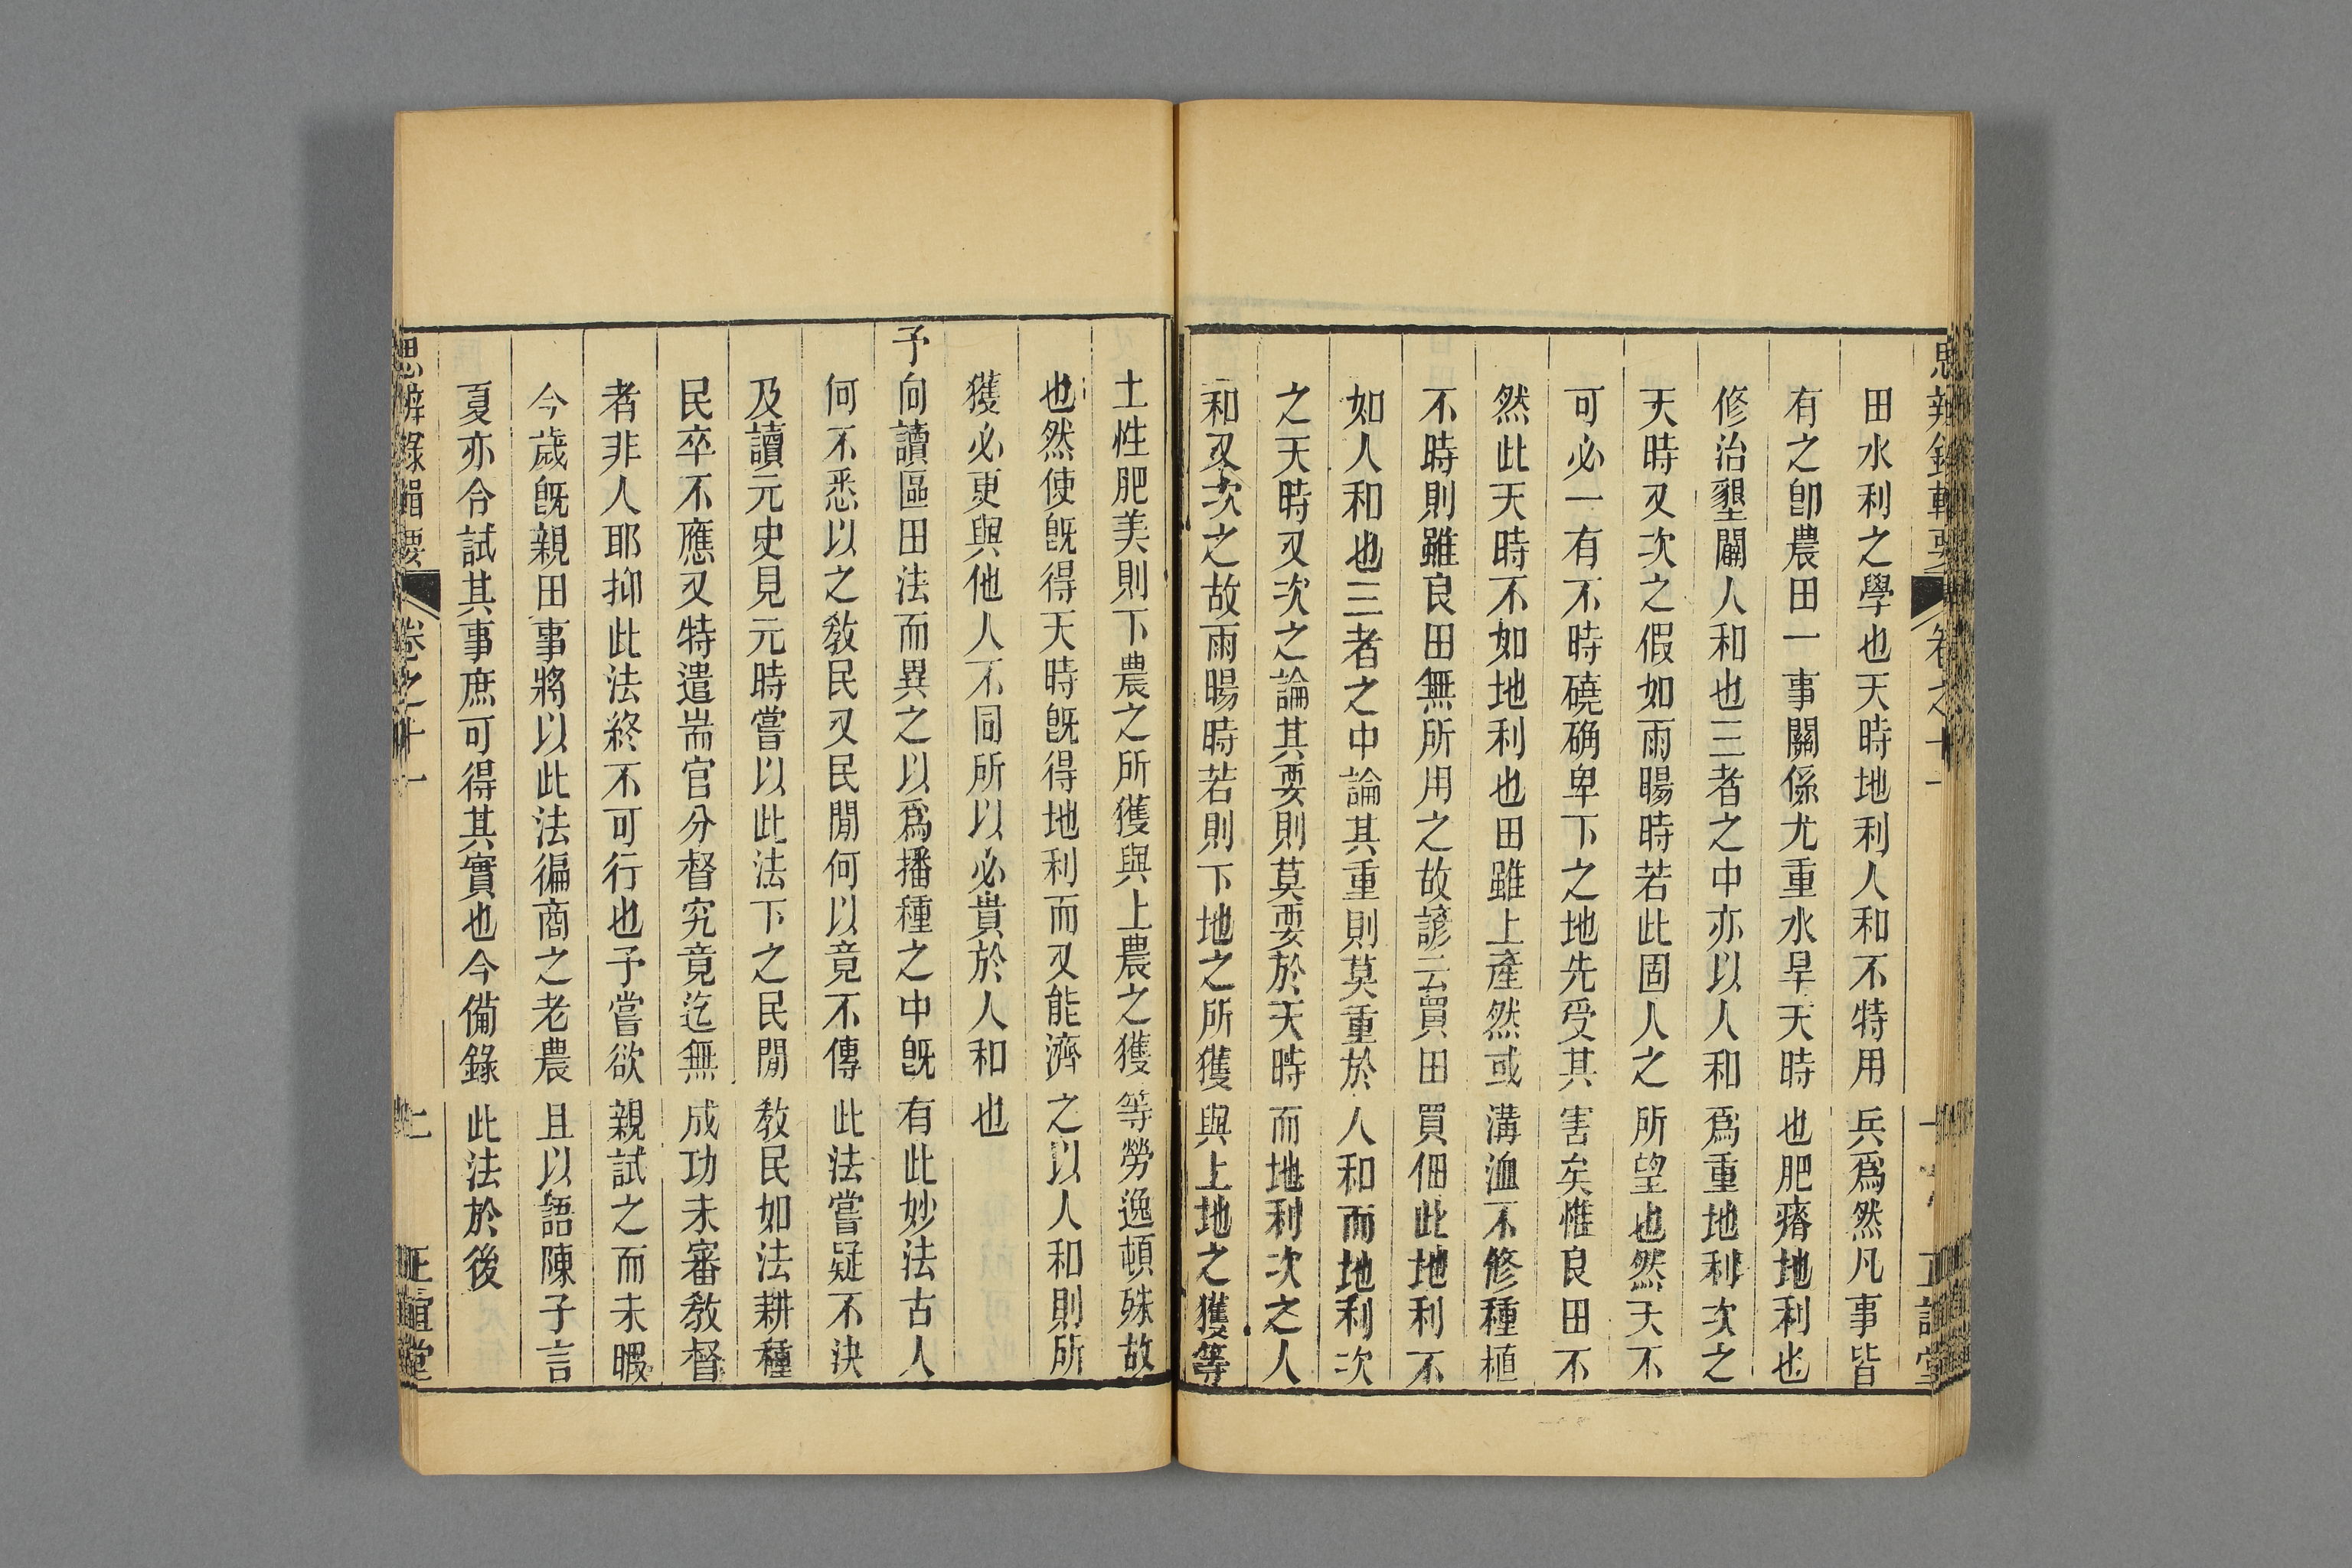 思辨錄輯要 卷之十一 正誼堂
田水利之學也天時地利人和不特用兵爲然凡事皆
有之卽農田一事關係尤重水旱天時也肥瘠地利也
修治墾闢人和也三者之中亦以人和爲重地利次之
天時又次之假如雨暘時若此固人之所望也然天不
可必一有不時磽确卑下之地先受其害矣惟良田不
然此天時不如地利也田雖上產然或溝洫不修種植
不時則雖良田無所用之故諺云買田買佃此地利不
如人和也三者之中論其重則莫重於人和而地利次
之天時又次之論其要則莫要於天時而地利次之人
和又次之故雨暘時若則下地之所獲與上地之獲等
土性肥美則下農之所獲與上農之獲等勞逸頓殊故
也然使旣得天時旣得地利而又能濟之以人和則所
獲必更與他人不同所以必貴於人和也
予向讀區田法而異之以爲播種之中旣有此妙法古人
何不悉以之敎民又民閒何以竟不傳此法嘗疑不決
及讀元史見元時嘗以此法下之民閒敎民如法耕種
民卒不應又特遣耑官分督究竟迄無成功未審敎督
者非人耶抑此法終不可行也予嘗欲親試之而未暇
今歲旣親田事將以此法徧商之老農且以語陳子言
夏亦令試其事庶可得其實也今備錄此法於後
思辨錄輯要 卷之十一 正誼堂